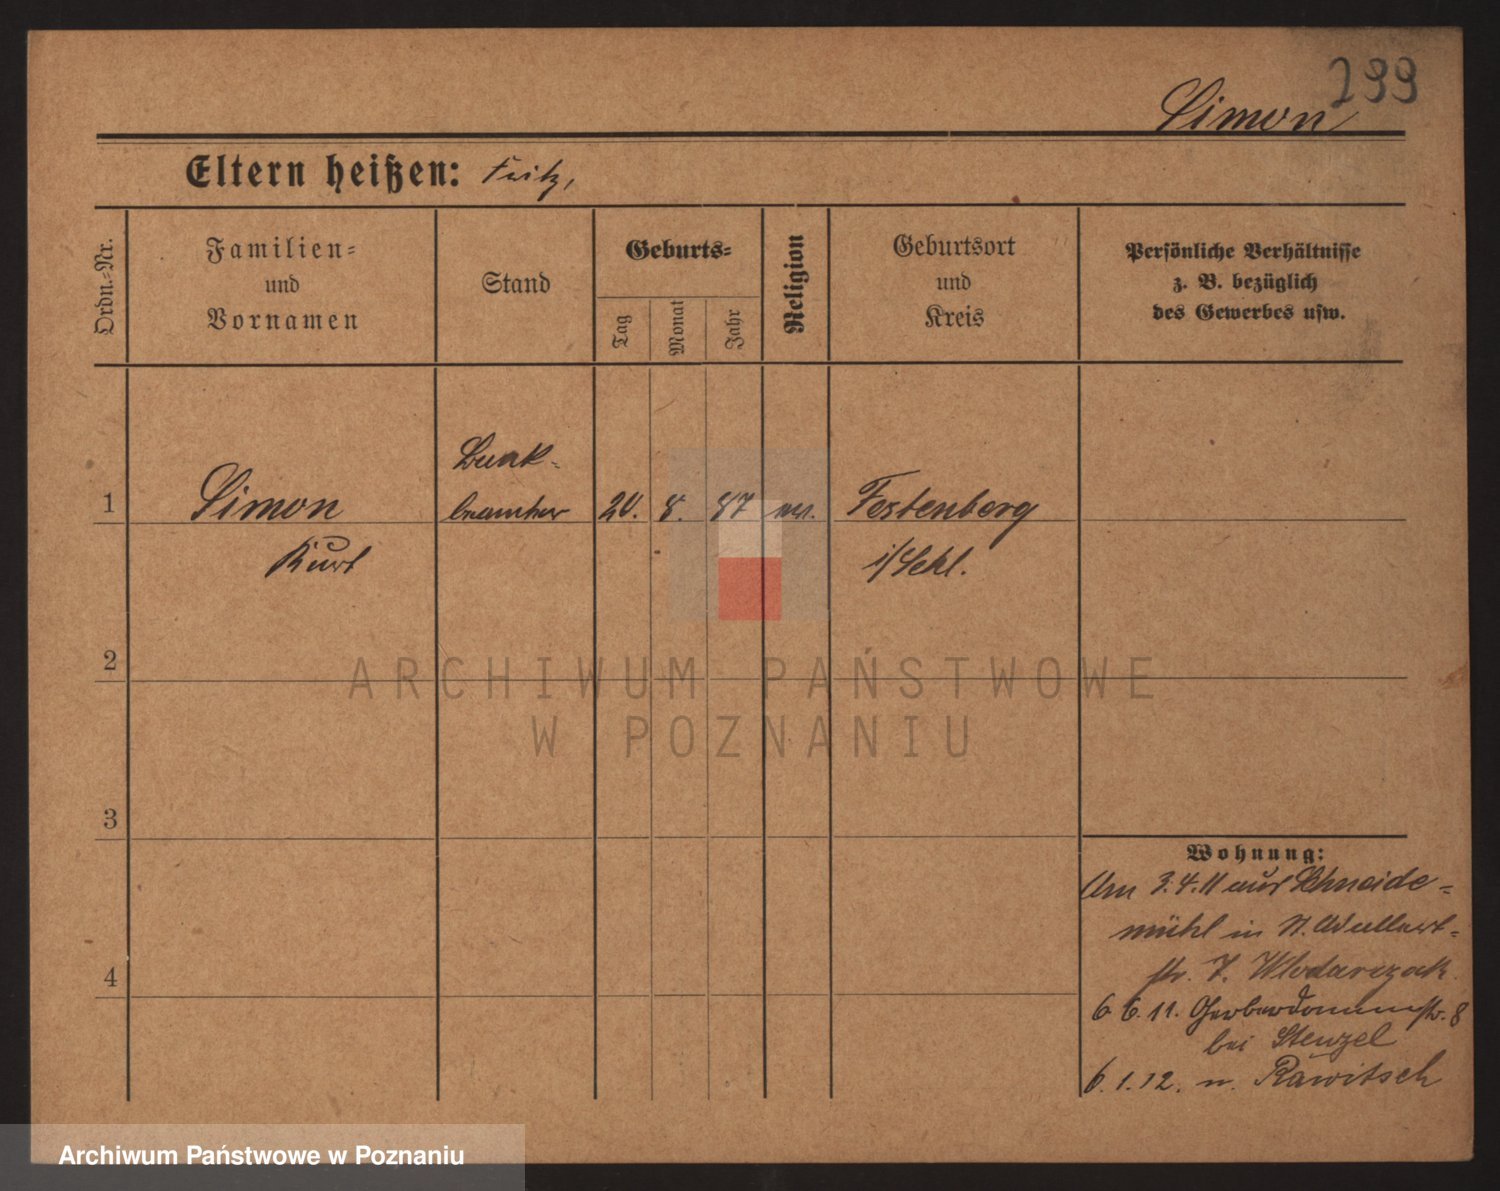 299
Simon
Eltern heißen: Fritz,
Ordn.-Nr.
Familien-
und
Vornamen
Stand
Geburts-
Tag
Monat
Jahr
Religion
Geburtsort
und
Kreis
Persönliche Verhältnisse
z. B. bezüglich
des Gewerbes usw.
1
Simon
Kurt
Bank-
beamter
20. 8. 87
Festenberg
i/Schl.
2
3
4
Wohnung:
Am 3.4.11 aus Schneide-
mühl in
str. 7. Wlodarczak
6.6.11. Gerberdammstr. 8
bei Stenzel
6.1.12. n. Rawitsch
ARCHIWUM PAŃSTWOWE
W POZNANIU
Archiwum Państwowe w Poznaniu